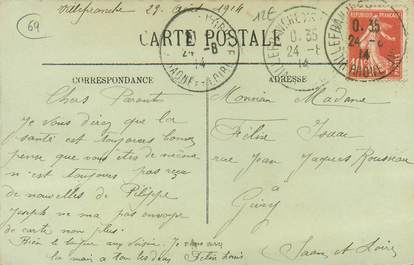 69
Villefranche 24 Août 1914
12E
CARTE POSTALE
CORRESPONDANCE
ADRESSE
0.35
24-8
14
VILLEFRANCHE
RHÔNE
Chers Parents
Je vous dirai que la
santé est toujours bonne
pense que vous êtes de même
n'est toujours pas reçu
de nouvelles de Philippe
Joseph ne m'a pas envoyé
de carte non plus.
Bien le bonjour aux voisins. Je vous serre
la main à tous les deux Louis
Monsieur Madame
Félix Isaac
rue Jean Jaques Rousseau
Givry
Saone et Loire